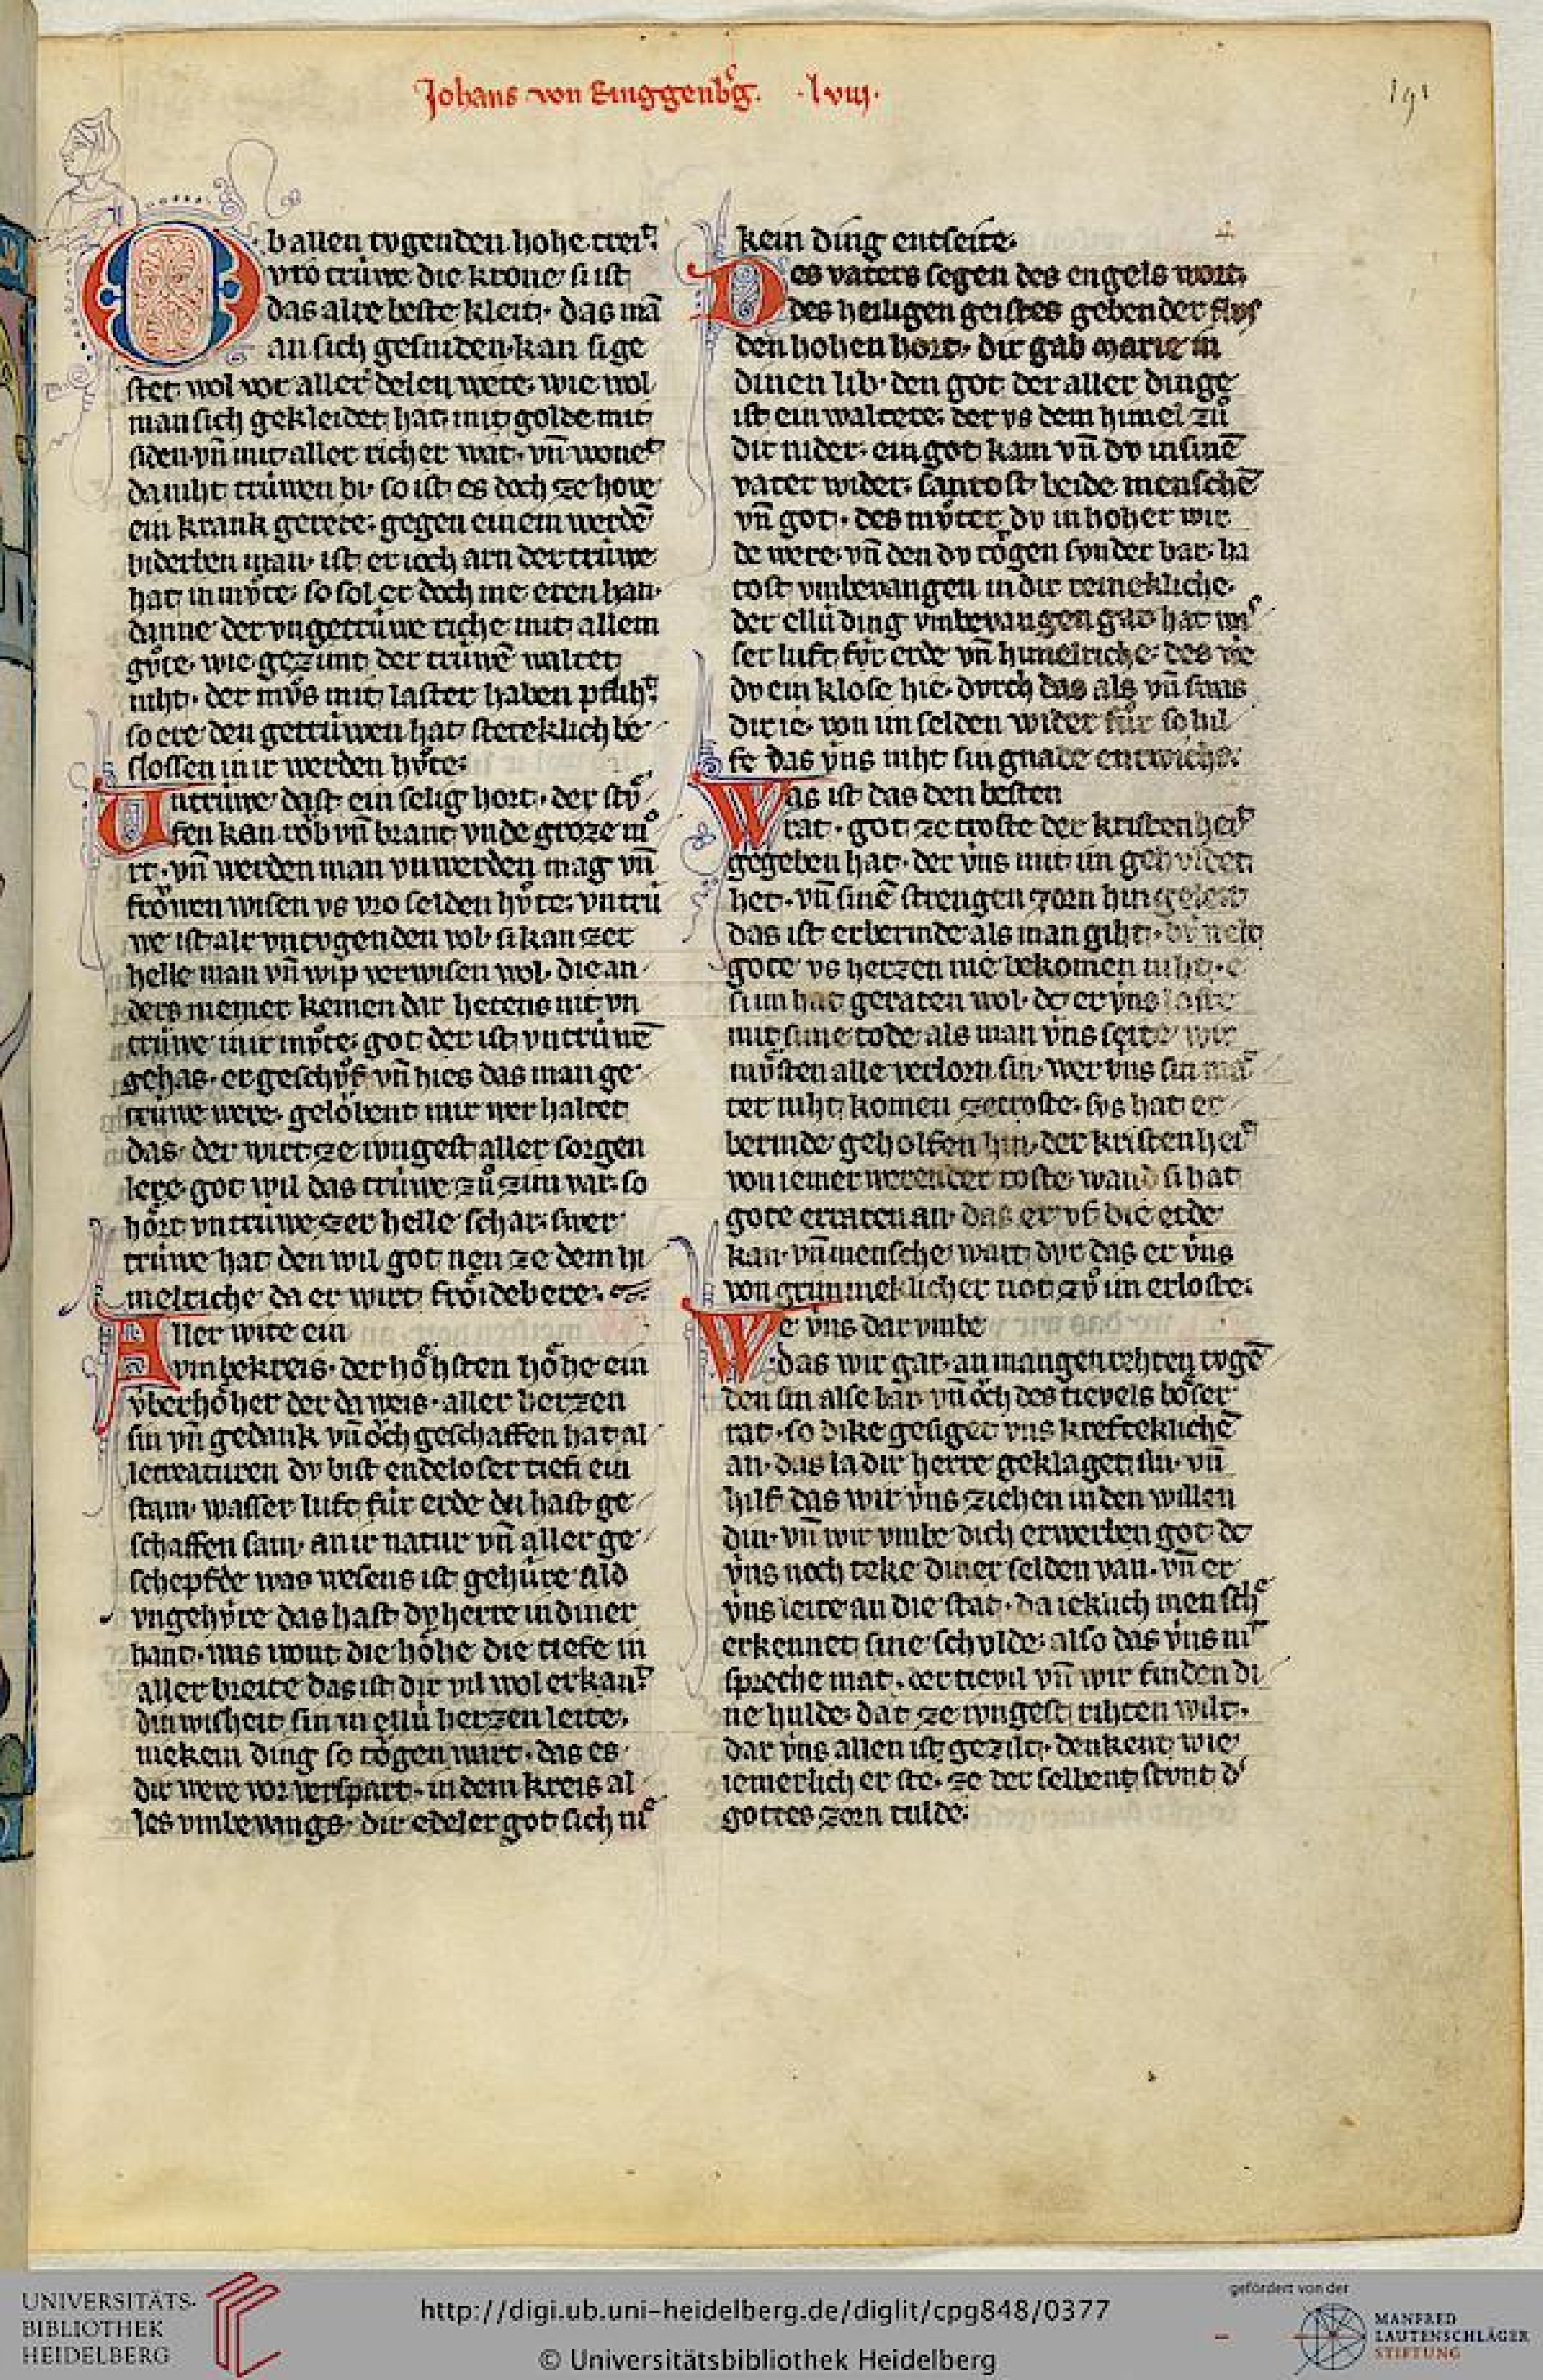 Johans von Ringgenbͨg. · lviij ·
191
Ob allen tvgenden hohe treit
vro trúwe die krone si ist
das alre beste kleit · das mā
an sich gesniden kan sige
stet wol vor aller delen wete · wie wol
man sich gekleidet hat mit golde mit
siden vn̄ mit aller richer wat · vn̄ wonet
da niht trúwen bi · so ist es doch ze hove
ein krank gerete · gegen einem werdē
biderben man · ist er ioch arn der trúwe
hat in mv̊te · so sol er doch me eren han ·
danne der vngetrúwe riche mit allem
gv̊te · wie gezimt der trúwē waltet
niht · der mv̊s mit laster haben pfliht
so ere den getrúwen hat steteklich be
slossen in ir werden hv̊te ·
Untrúwe dast ein selig hort · der stó
fen kan rŏb vn̄ brant vnde groze mo
rt · vn̄ werden man vnwerden mag vn̄
frowen wisen vs vro selden hv̊te · vntrú
we ist alr vntvgenden vol · si kan zer
helle man vn̄ wip verwisen wol · die an
ders niemer keinen dar hetens nit vn
trúwe in ir mv̊te · got der ist vntrúwē
gehas · er geschv̊f vn̄ hies das man ge
trúwe were · gelŏbent mir wer haltet
das · der wirt ze ivngest aller sorgen
lere · got wil das trúwe zů zim var · so
hŏrt vntrúwe zer helle schar · swer
trúwe hat den wil got nen ze dem hi
melriche da er wirt frŏidebere ·
Aller wite ein
vmbekreis · der hŏhsten hŏhe ein
v̊berhŏher der da weis · aller herzen
sin vn̄ gedank vn̄ ŏch geschaffen hat al
le creaturen dv bist endeloser tiefi ein
stam · wasser luft fúr erde du hast ge
schaffen sam · an ir natur vn̄ aller ge
schepfde was wesens ist gehúre ald
vngehv́re das hast dv herre in diner
hant · was wont die hŏhe die tiefe in
aller breite das ist dir vil wol erkant
din wisheit sin in ellú herzen leite ·
niekein ding so tŏgen wart · das es
dir were vor verspart · in dem kreis al
les vmbevangs · dir edeler got sich nie
kein ding entseite ·
Des vaters segen des engels wort ·
des heiligen geistes geben der flvs
den hohen hort · dir gab Marie in
dinen lib · den got der aller dinge
ist ein waltere · der vs dem himel zů
dir nider · ein got kam vn̄ dv in sinē
vater wider · santost beide menschē
vn̄ got · des mv̊ter dv in hoher wir
de were · vn̄ den dv tŏgen svnder bar · ha
tost vmbevangen in dir reinekliche ·
der ellú ding vmbevangen gar hat was
ser luft fv́r erde vn̄ himelriche · des we
dv ein klose hie · dvrch das als vn̄ swas
dir ie · von im selden wider fůr so hil
fe das v́ns niht sin gnade entwiche ·
Was ist das den besten
rat · got ze troste der kristenheit
gegeben hat · der v́ns mit im gehvldet
het · vn̄ sinē strengen zorn hin geleit
das ist erbermde als man giht ·
gote vs herzen nie bekomen niht · e
si im hat geraten wol · dc er v́ns loste
mit sime tode als man v́ns seite · wir
mv̊sten alle verlorn sin · wer vns sin mar
ter niht komen ze troste · svs hat er
bermde geholfen hin der kristenheit
von iemer werender roste · wand si hat
gote erraten an · das er vf die erde
kan · vn̄ mensche wart dvr das er v́ns
von grimmeklicher not zv̊ im erloste ·
We v́ns dar vmbe
das wir gar · an mangen rehten tvgē
den sin alse bar · vn̄ ŏch des tievels bŏser
rat · so dike gesiget vns krefteklichē
an · das la dir herre geklaget sin · vn̄
hilf das wir v́ns ziehen in den willen
din · vn̄ wir vmbe dich erwerben got dc
v́ns noch teke diner selden van · vn̄ er
v́ns leite an die stat · da ieklich mensche
erkennet sine schvlde · also das v́ns nit
spreche mat · der tievil vn̄ wir finden di
ne hulde · dat ze ivngest rihten wilt ·
dar v́ns allen ist gezilt · denkent wie
iemerlich er ste · ze der selbent stvnt ds
gottes zorn tulde ·
UNIVERSITÄTS-
BIBLIOTHEK
HEIDELBERG
http://digi.ub.uni-heidelberg.de/diglit/cpg848/0377
© Universitätsbibliothek Heidelberg
gefördert von der
MANFRED
LAUTENSCHLÄGER
STIFTUNG